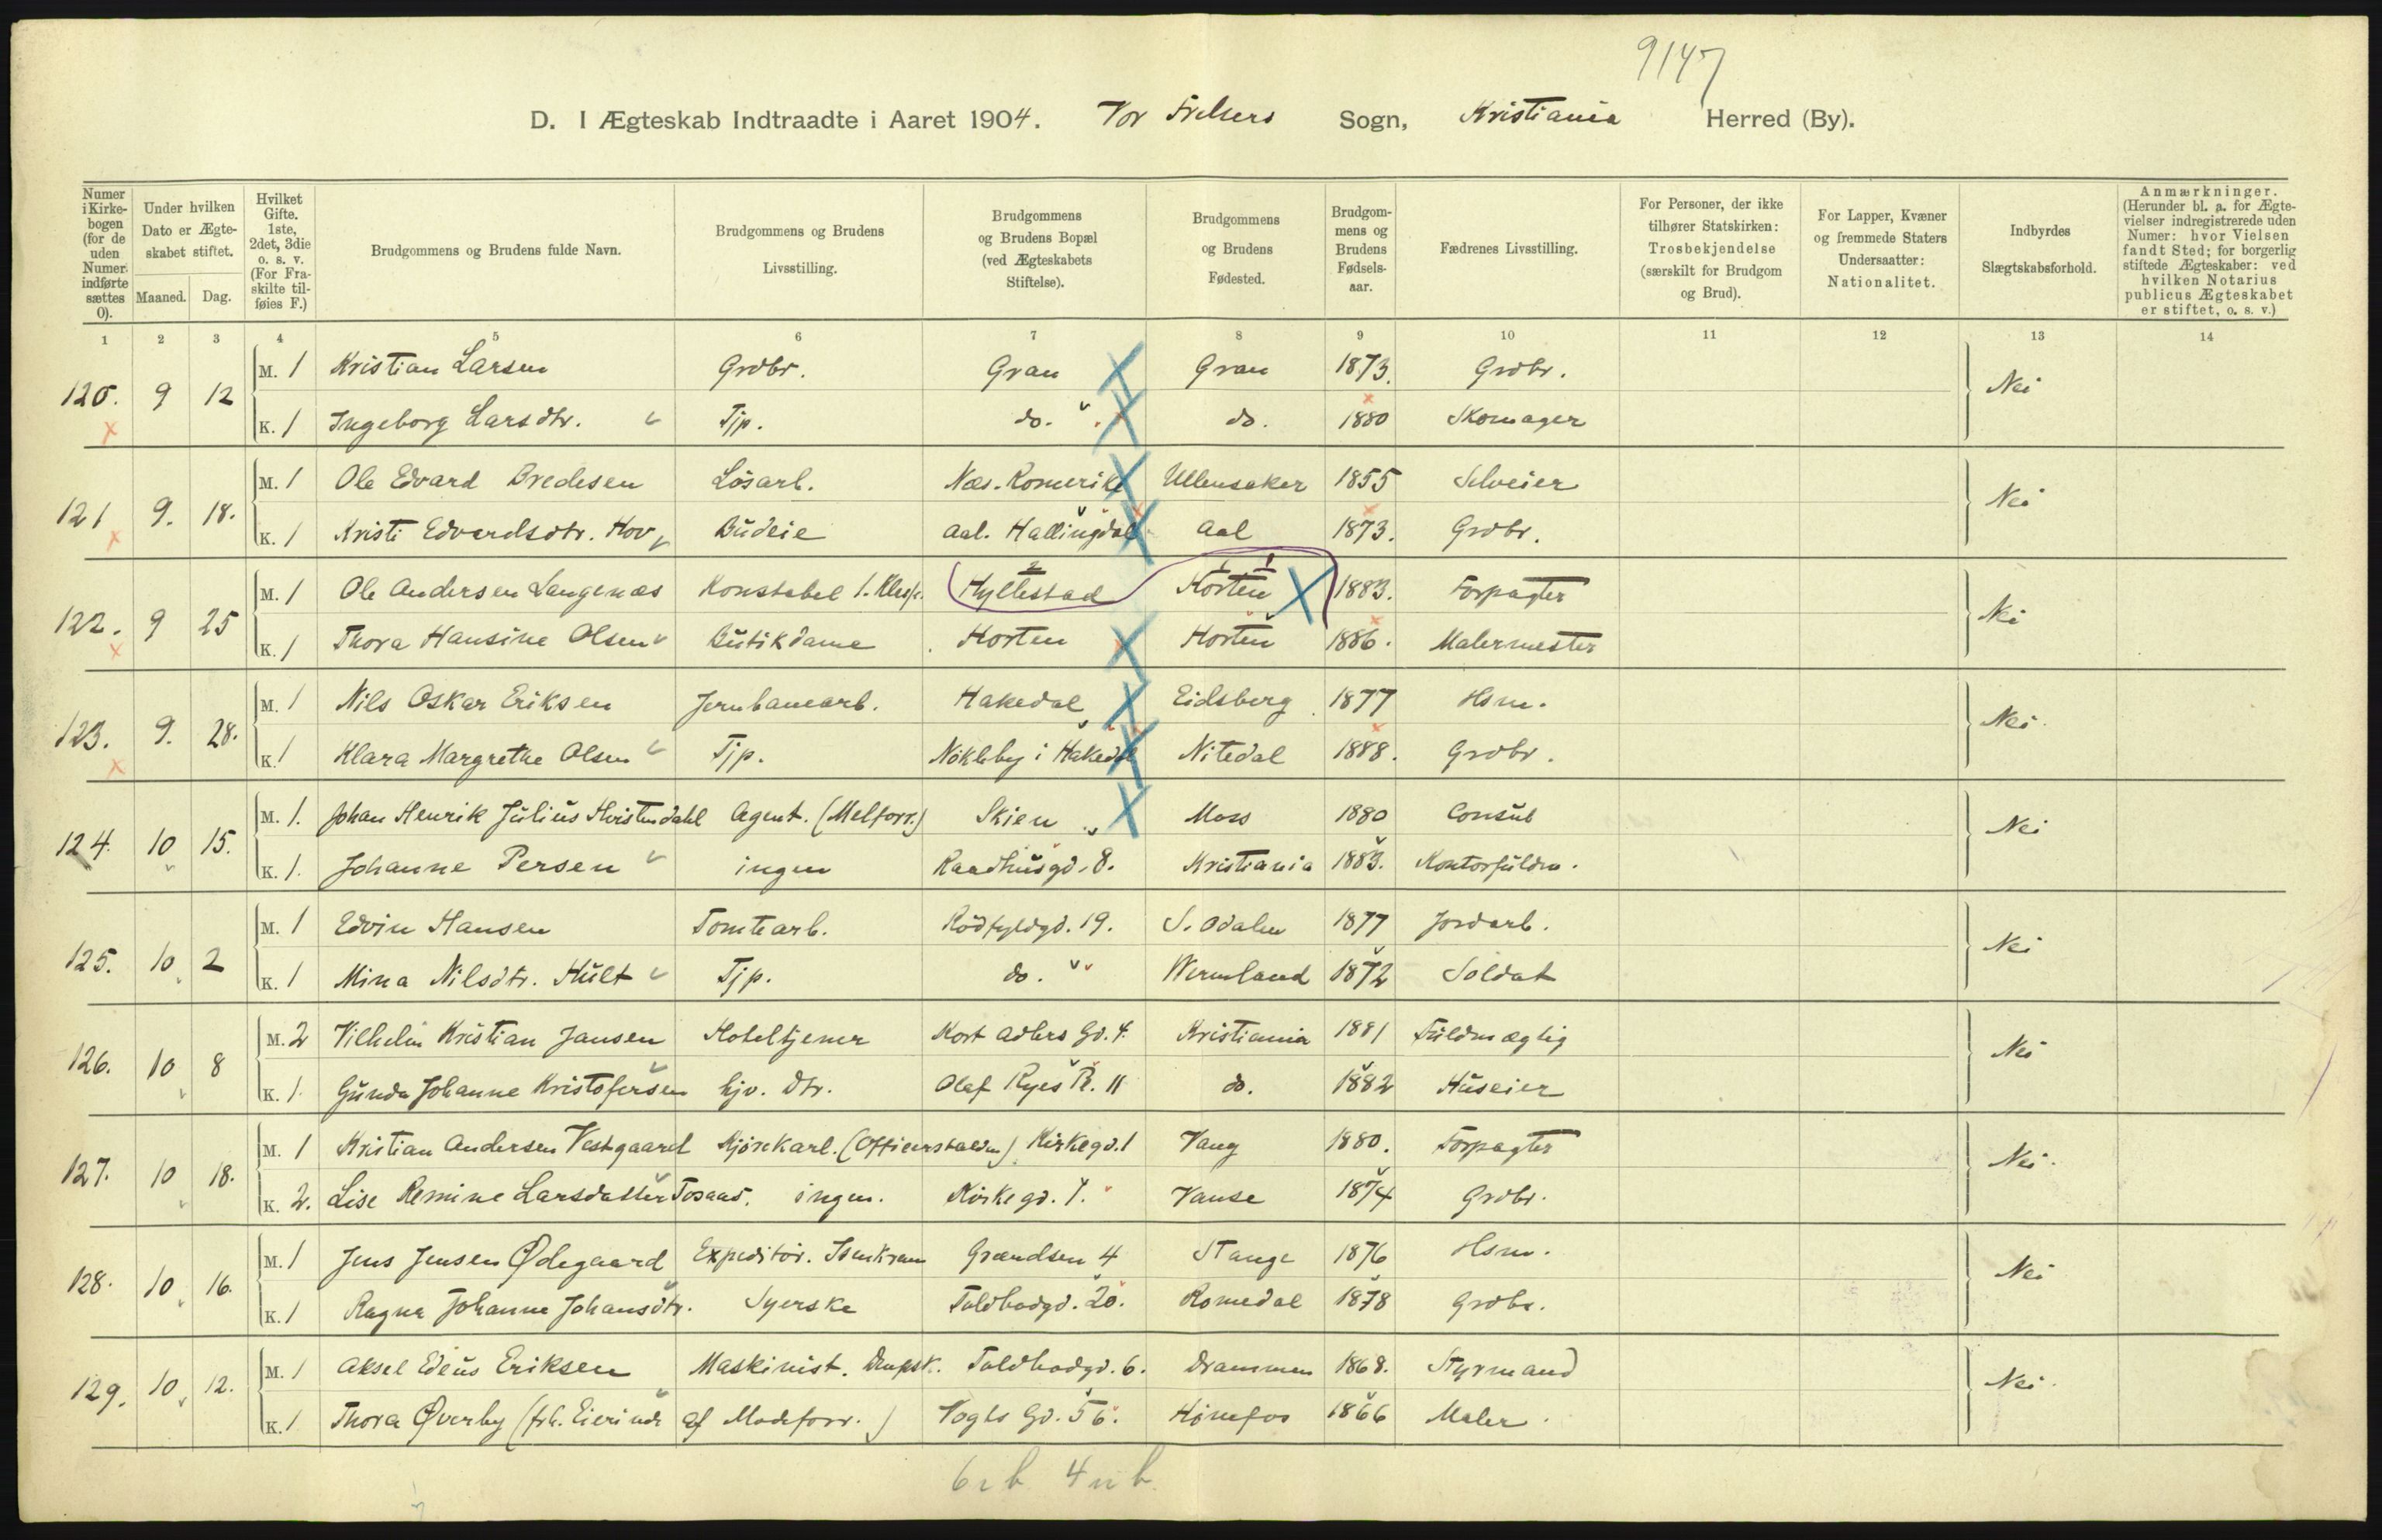 9147
D. I Ægteskab Indtraadte i Aaret 1904. Vor Frelsers Sogn, Kristiania Herred (By).
Numer i Kirkebogen (for de uden Numer indførte sættes 0).
Under hvilken Dato er Ægteskabet stiftet.
Maaned. Dag.
Hvilket Gifte. 1ste, 2det, 3die o. s. v. (For Fraskilte tilføies F.)
Brudgommens og Brudens fulde Navn.
Brudgommens og Brudens Livsstilling.
Brudgommens og Brudens Bopæl (ved Ægteskabets Stiftelse).
Brudgommens og Brudens Fødested.
Brudgommens og Brudens Fødselsaar.
Fædrenes Livsstilling.
For Personer, der ikke tilhører Statskirken: Trosbekjendelse (særskilt for Brudgom og Brud).
For Lapper, Kvæner og fremmede Staters Undersaatter: Nationalitet.
Indbyrdes Slægtskabsforhold.
Anmærkninger. (Herunder bl. a. for Ægtevielser indregistrerede uden Numer: hvor Vielsen fandt Sted; for borgerlig stiftede Ægteskaber: ved hvilken Notarius publicus Ægteskabet er stiftet, o. s. v.)
1 2 3 4 5 6 7 8 9 10 11 12 13 14
M. 1 Kristian Larsen Grdbr. Gran Gran 1873. Grdbr.
120. 9 12 Nei
K. 1 Ingeborg Larsdtr. Tjp. do. do. 1880 Skomager
M. 1 Ole Edvard Bredesen Løsarb. Næs. Romerike Ullensaker 1855 Selveier
121 9. 18. Nei
K. 1 Kristi Edvardsdtr. Hov Budeie Aal. Hallingdal Aal 1873. Grdbr.
M. 1 Ole Andersen Langenæs Konstabel 1. Kl. Hyllestad Horten 1883. Forpagter
122. 9 25 Nei
K. 1 Thora Hansine Olsen Butikdame Horten Horten 1886. Malermester
M. 1 Nils Oskar Eriksen Jernbanearb. Hakedal Eidsberg 1877 Hsm.
123. 9. 28. Nei.
K. 1 Klara Margrethe Olsen Tjp. Nökleby i Hakedal Nitedal 1888. Grdbr.
M. 1. Johan Henrik Julius Hvistendahl Agent. (Melforr.) Skien Moss 1880 Consul
124. 10 15. Nei
K. 1. Johanne Persen ingen Raadhusgd. 8. Kristiania 1883. Kontorfuldm.
M. 1 Edvin Hansen Tomtearb. Rødfyldgd. 19. S. Odalen 1877 Jordarb.
125. 10 2 Nei
K. 1 Mina Nilsdtr. Hult Tjp. do. Wermland 1872 Soldat
M. 2 Vilhelm Kristian Jansen Hoteltjener Kort Adlers Gd. 4. Kristiania 1881 Fuldmægtig
126. 10 8 Nei
K. 1. Gunda Johanne Kristofersen hjv. Dtr. Olaf Ryes Pl. 11 do. 1882 Huseier
M. 1 Kristian Andersen Vestgaard Kjørekarl. (Officerstalden) Kirkegd. 1 Vang 1880. Forpagter
127. 10 18. Nei.
K. 2. Lise Remine Larsdatter Tosaas. ingen. Kirkegd. 1. Vanse 1874 Grdbr.
M. 1 Jens Jensen Ødegaard Expeditør. Isenkram Grændsen 4 Stange 1876 Hsm.
128. 10 16. Nei
K. 1 Ragna Johanne Johansdtr. Syerske Toldbodgd. 20. Romedal 1878 Grdbr.
M. 1 Aksel Edeus Eriksen Maskinist. Dampsk. Toldbodgd. 6. Drammen 1868. Styrmand
129. 10 12. Nei.
K. 1 Thora Øverby (frh. Eierinde af Modeforr.) Vogts Gd. 56. Hønefos 1866 Maler.